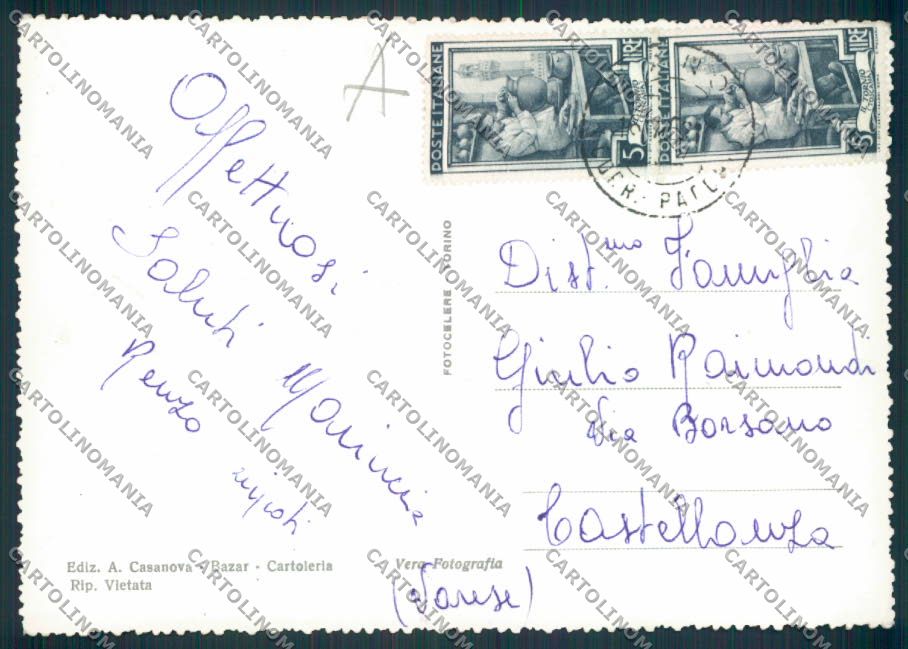 A
POSTE ITALIANE
5
LIRE
IL TORNIO
POSTE ITALIANE
5
LIRE
IL TORNIO
Affettuosi
Saluti
Renzo
nipoti
FOTOCELERE TORINO
Dist.mo Famiglia
Giulio Raimondi
Via Borsano
Castellanza
(Varese)
Ediz. A. Casanova - Bazar - Cartoleria
Rip. Vietata
Vera Fotografia
CARTOLINOMANIA